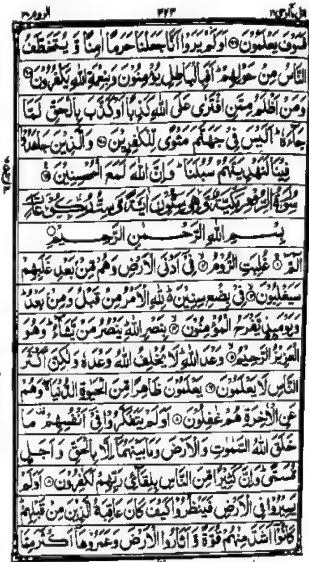 اتل مآاوحی ۲۱ ۴۲۳ الروم ۳۰
فَسَوْفَ يَعْلَمُوْنَ ۝ اَوَلَمْ يَرَوْا اَنَّا جَعَلْنَا حَرَمًا اٰمِنًا وَّ يُتَخَطَّفُ
النَّاسُ مِنْ حَوْلِهِمْ ؕ اَفَبِالْبَاطِلِ يُؤْمِنُوْنَ وَبِنِعْمَةِ اللّٰهِ يَكْفُرُوْنَ ۝
وَمَنْ اَظْلَمُ مِمَّنِ افْتَرٰى عَلَى اللّٰهِ كَذِبًا اَوْ كَذَّبَ بِالْحَقِّ لَمَّا
جَآءَهٗ ؕ اَلَيْسَ فِيْ جَهَنَّمَ مَثْوًى لِّلْكٰفِرِيْنَ ۝ وَالَّذِيْنَ جَاهَدُوْا
فِيْنَا لَنَهْدِيَنَّهُمْ سُبُلَنَا ؕ وَاِنَّ اللّٰهَ لَمَعَ الْمُحْسِنِيْنَ ۝
سُوْرَةُ الرُّوْمِ مَكِّيَّةٌ وَّهِيَ سِتُّوْنَ اٰيَةً وَّ سِتُّ رُكُوْعَاتٍ
بِسْمِ اللّٰهِ الرَّحْمٰنِ الرَّحِيْمِ
الٓمّٓ ۝ غُلِبَتِ الرُّوْمُ ۝ فِيْٓ اَدْنَى الْاَرْضِ وَهُمْ مِّنْۢ بَعْدِ غَلَبِهِمْ
سَيَغْلِبُوْنَ ۝ فِيْ بِضْعِ سِنِيْنَ ؕ لِلّٰهِ الْاَمْرُ مِنْ قَبْلُ وَمِنْۢ بَعْدُ
وَيَوْمَئِذٍ يَّفْرَحُ الْمُؤْمِنُوْنَ ۝ بِنَصْرِ اللّٰهِ يَنْصُرُ مَنْ يَّشَآءُ ؕ وَهُوَ
الْعَزِيْزُ الرَّحِيْمُ ۝ وَعْدَ اللّٰهِ لَا يُخْلِفُ اللّٰهُ وَعْدَهٗ وَلٰكِنَّ اَكْثَرَ
النَّاسِ لَا يَعْلَمُوْنَ ۝ يَعْلَمُوْنَ ظَاهِرًا مِّنَ الْحَيٰوةِ الدُّنْيَا وَهُمْ
عَنِ الْاٰخِرَةِ هُمْ غٰفِلُوْنَ ۝ اَوَلَمْ يَتَفَكَّرُوْا فِيْٓ اَنْفُسِهِمْ مَا
خَلَقَ اللّٰهُ السَّمٰوٰتِ وَالْاَرْضَ وَمَا بَيْنَهُمَآ اِلَّا بِالْحَقِّ وَ اَجَلٍ
مُّسَمًّى ؕ وَاِنَّ كَثِيْرًا مِّنَ النَّاسِ بِلِقَآئِ رَبِّهِمْ لَكٰفِرُوْنَ ۝ اَوَلَمْ
يَسِيْرُوْا فِي الْاَرْضِ فَيَنْظُرُوْا كَيْفَ كَانَ عَاقِبَةُ الَّذِيْنَ مِنْ قَبْلِهِمْ
كَانُوْٓا اَشَدَّ مِنْهُمْ قُوَّةً وَّ اَثَارُوا الْاَرْضَ وَعَمَرُوْهَآ اَكْثَرَ مِمَّا